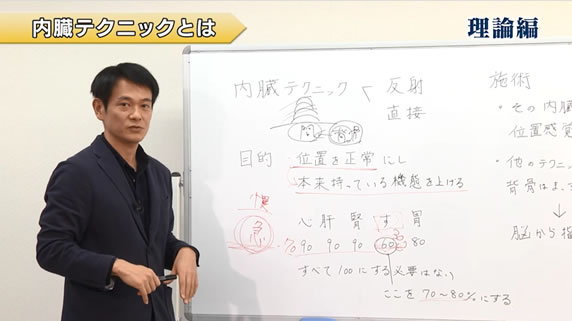 内臓テクニックとは
理論編
内臓テクニック
反射
直接
施術
・その内臓
位置感覚
目的
・位置を正常にし
・本来持っている機能を上げる
・他のテクニ
背骨は
↓
脳から
急
心 肝 腎 す 胃
90 90 90 60 80
すべて100にする必要はない
ここを70〜80%にする